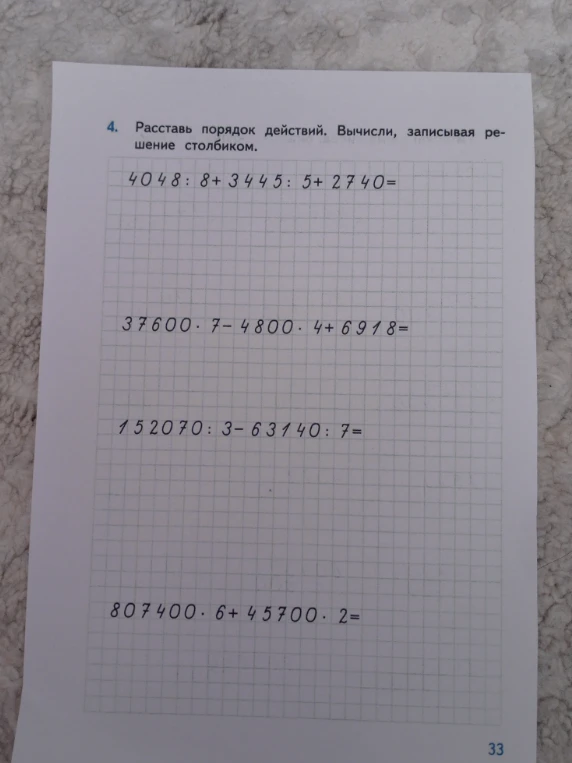 4. Расставь порядок действий. Вычисли, записывая ре-
шение столбиком.
4048: 8+ 3445: 5+ 2740=
37600· 7- 4800· 4+ 6918=
152070: 3- 63140: 7=
807400· 6+ 45700· 2=
33